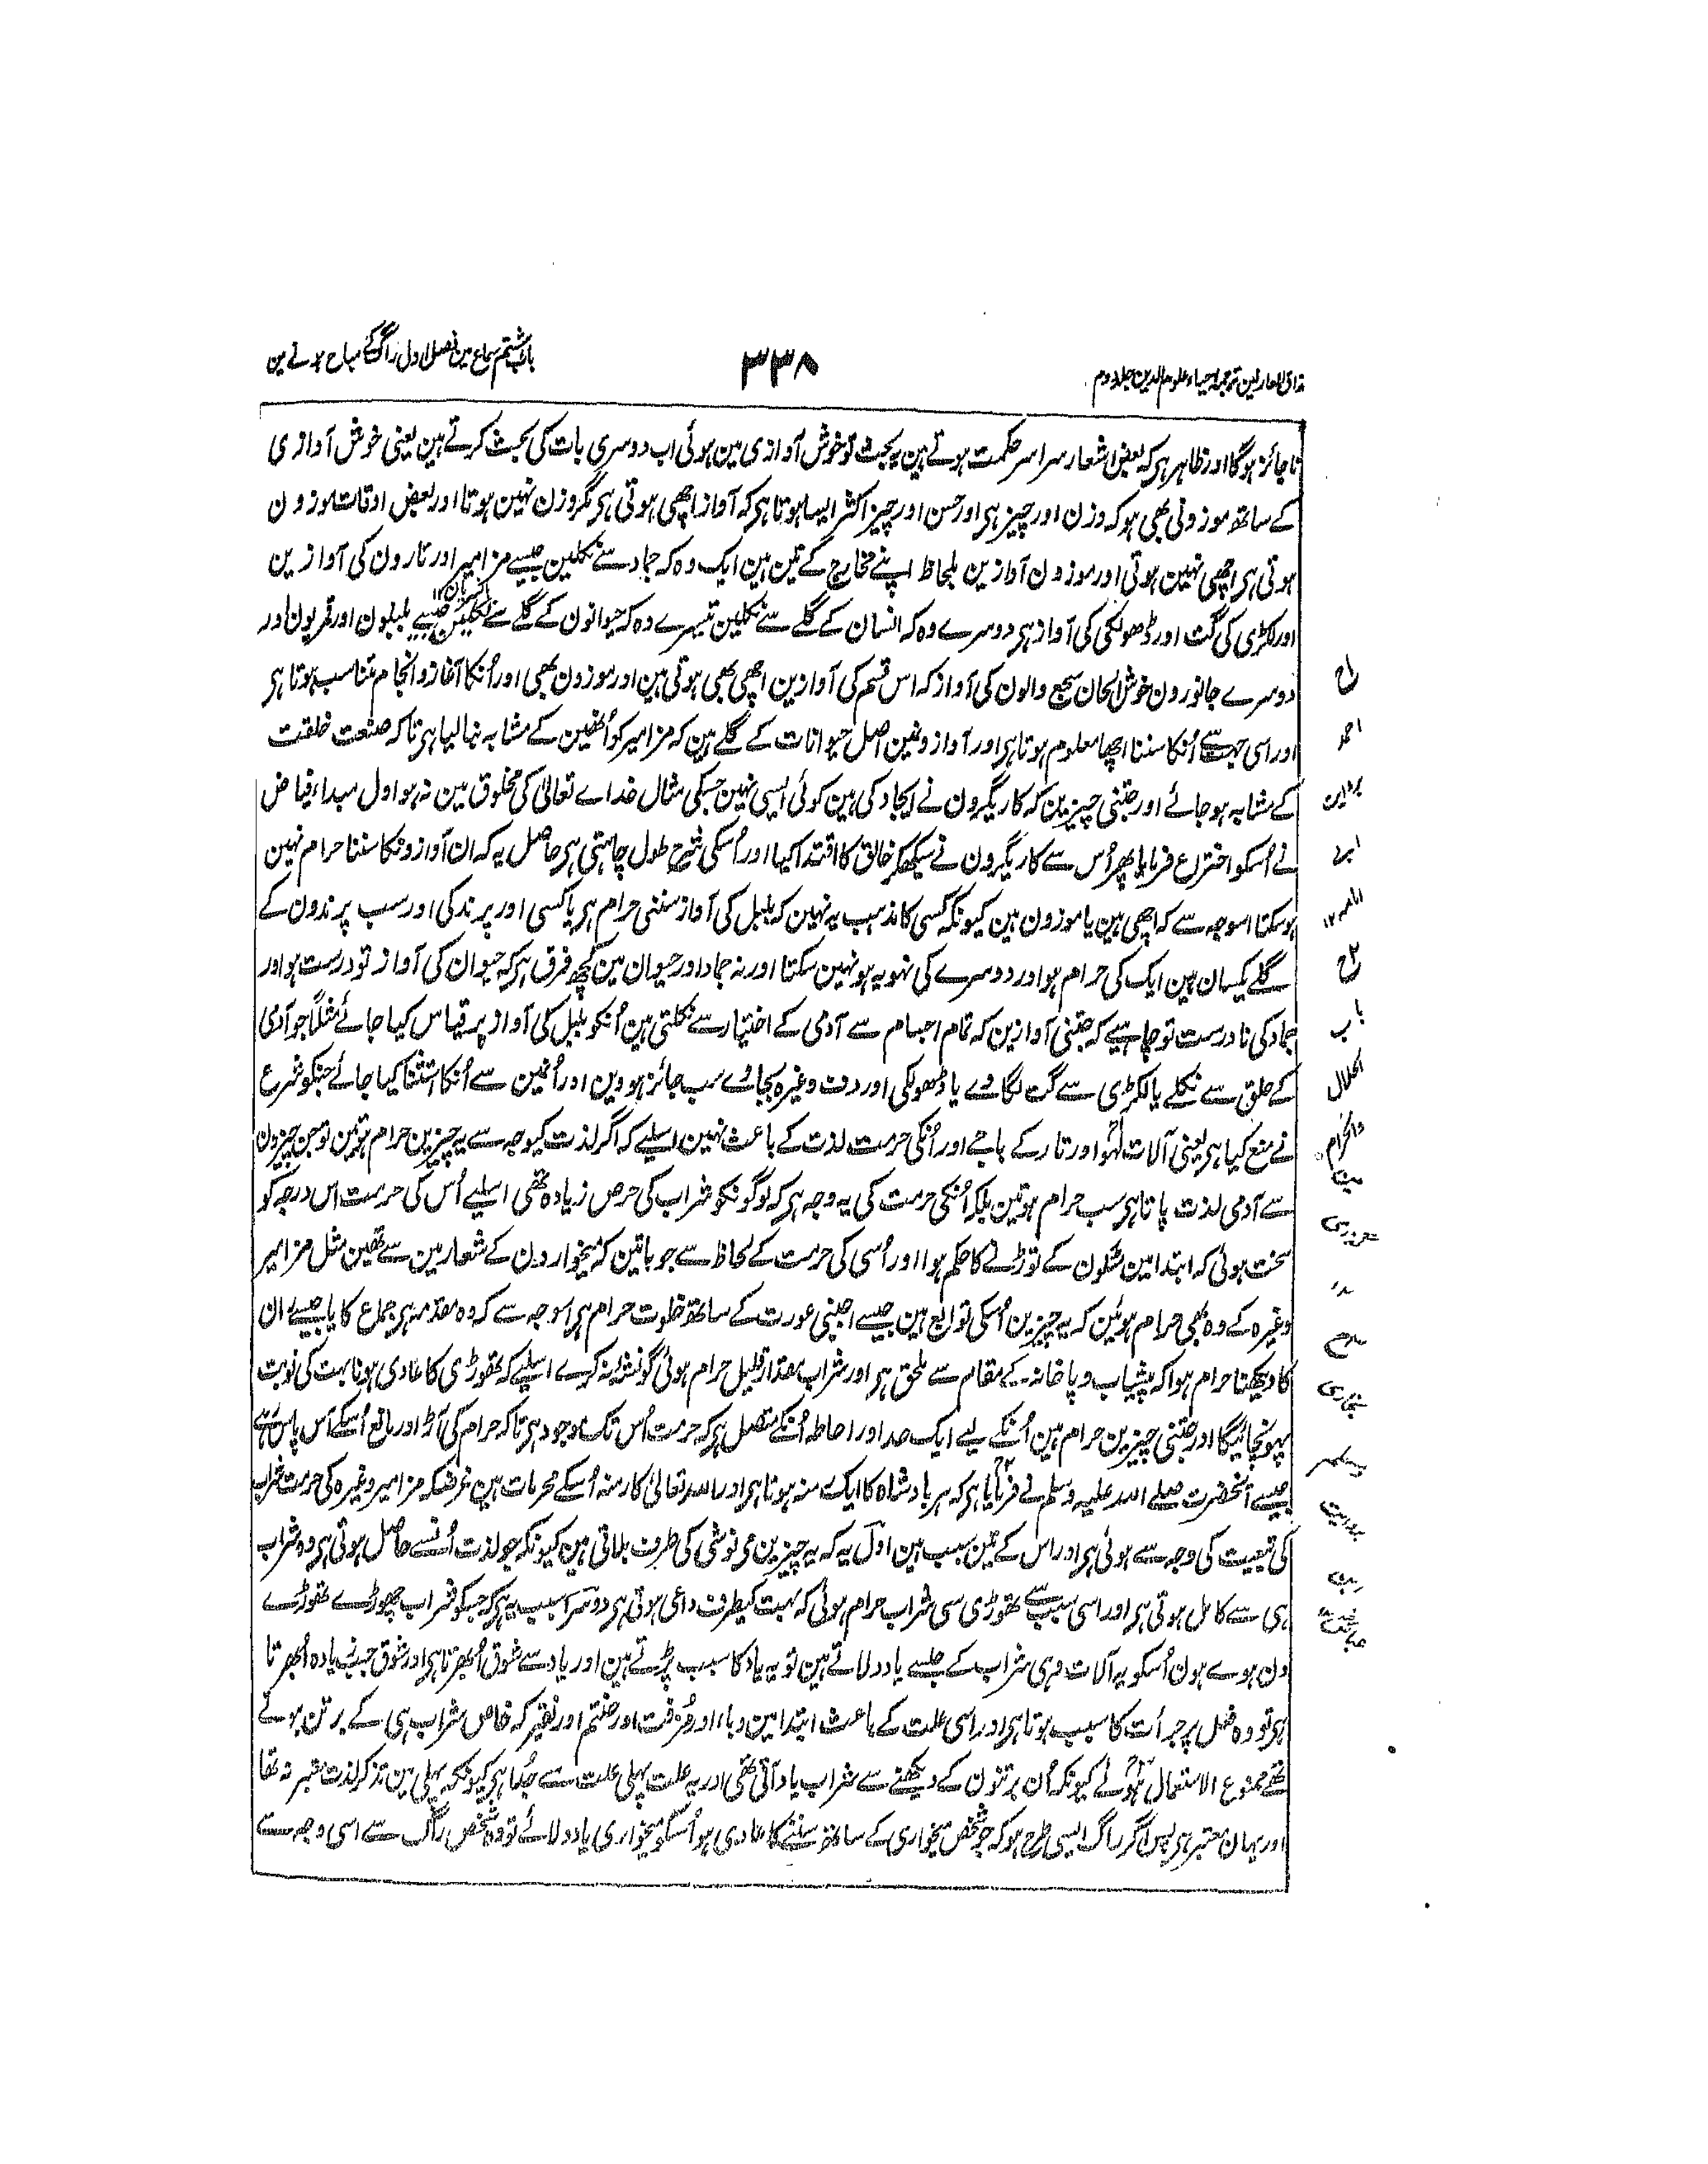 مذاق العارفین ترجمہ احیاء علوم الدین جلد دوم
۳۳۸
باب ہشتم سماع مین فصل اول راگ کے مباح ہونے مین
ناجائز ہوگا اور ظاہر ہی کہ بعض اشعار سراسر حکمت ہوتے ہین یہ بحث تو خوش آوازی مین ہوئی اب دوسری بات کی بحث کرتے ہین یعنی خوش آوازی
کے ساتھ موزونی بھی ہو کہ وزن اور چیز ہی اور حسن اور چیز اکثر ایسا ہوتا ہی کہ آواز اچھی ہوتی ہی مگر وزن نہین ہوتا اور بعض اوقات موزون
ہوتی ہی اچھی نہین ہوتی اور موزون آوازین بلحاظ اپنے مخارج کے تین ہین ایک وہ کہ جماد سے نکلین جیسے مزامیر اور تارون کی آوازین
اور لکڑی کی گت اور ڈھولکی کی آواز ہی دوسرے وہ کہ انسان کے گلے سے نکلین تیسرے وہ کہ حیوانون کے گلے سے نکلین جیسے بلبلون اور قمریون اور
دوسرے جانورون خوش الحان سجع والون کی آواز کہ اس قسم کی آوازین اچھی بھی ہوتی ہین اور موزون بھی اور اُنکا آغاز و انجام متناسب ہوتا ہی
اور اسی جہت سے اُنکا سننا اچھا معلوم ہوتا ہی اور آوازونمین اصل حیوانات کے گلے ہین کہ مزامیر کو اُنھین کے مشابہ بنالیا ہی تاکہ صنعت خلقت
کے مشابہ ہو جائے اور جتنی چیزین کہ کاریگرون نے ایجاد کی ہین کوئی ایسی نہین جسکی مثال خداے تعالیٰ کی مخلوق مین نہو اول مبداء فیاض
نے اُسکو اختراع فرمایا پھر اُس سے کاریگرون نے سیکھکر خالق کا اقتدا کیا اور اُسکی شرح طول چاہتی ہی حاصل یہ کہ ان آوازونکا سننا حرام نہین
ہوسکتا اسوجہ سے کہ اچھی ہین یا موزون ہین کیونکہ کسی کا مذہب یہ نہین کہ بلبل کی آواز سننی حرام ہی یا کسی اور پرند کی اور سب پرندون کے
گلے یکسان ہین ایک کی حرام ہو اور دوسرے کی نہو یہ ہو نہین سکتا اور نہ جماد اور حیوان مین کچھ فرق ہی کہ حیوان کی آواز تو درست ہو اور
جماد کی نا درست تو چاہیے کہ جتنی آوازین کہ تمام اجسام سے آدمی کے اختیار سے نکلتی ہین اُنکو بلبل کی آواز پر قیاس کیا جائے مثلًا جو آدمی
کے حلق سے نکلے یا لکڑی سے گت لگاوے یا ڈھولکی اور دف وغیرہ بجاوے سب جائز ہووین اور اُنمین سے اُنکا استثنا کیا جائے جنکو شرع
نے منع کیا ہی یعنی آلات لہو اور تار کے باجے اور اُنکی حرمت لذت کے باعث نہین اسلیے کہ اگر لذت کیوجہ سے یہ چیزین حرام ہوتین تو جن چیزون
سے آدمی لذت پاتا ہی سب حرام ہوتین بلکہ اُنکی حرمت کی یہ وجہ ہی کہ لوگونکو شراب کی حرص زیادہ تھی اسلیے اُس کی حرمت اس درجہ کو
سخت ہوئی کہ ابتدا مین مٹکون کے توڑنے کا حکم ہوا اور اُسی کی حرمت کے لحاظ سے جو باتین کہ میخوارون کے شعار مین سے تھین مثل مزامیر
وغیرہ کے وہ بھی حرام ہوئین کہ یہ چیزین اُسکی توابع ہین جیسے اجنبی عورت کے ساتھ خلوت حرام ہی اسوجہ سے کہ وہ مقدمہ ہی جماع کا یا جیسے ران
کا دیکھنا حرام ہوا کہ پیشاب و پاخانہ کے مقام سے ملحق ہی اور شراب بمقدار قلیل حرام ہوئی گو نشہ نہ کرے اسلیے کہ تھوڑی کا عادی ہونا بہت کی نوبت
پہونچائیگا اور جتنی چیزین حرام ہین اُنکے لیے ایک حد اور احاطہ اُنکے متصل ہی کہ حرمت اُس تک موجود ہی تاکہ حرام کی آڑ اور مانع اُسکے آس پاس رہے
جیسے آنحضرت صلے اللہ علیہ وسلم نے فرمایا ہی کہ ہر بادشاہ کا ایک رمنہ ہوتا ہی اور اللہ تعالیٰ کا رمنہ اُسکے محرمات ہین غرضکہ مزامیر وغیرہ کی حرمت شراب
کی تبعیت کی وجہ سے ہوئی ہی اور اس کے تین سبب ہین اول یہ کہ یہ چیزین می نوشی کی طرف بلاتی ہین کیونکہ جو لذت اُنسے حاصل ہوتی ہی وہ شراب
ہی سے کامل ہوتی ہی اور اسی سبب سے تھوڑی سی شراب حرام ہوئی کہ بہت کیطرف داعی ہوتی ہی دوسرا سبب یہ ہی کہ جسکو شراب چھوڑے تھوڑے
دن ہوے ہون اُسکو یہ آلات وہی شراب کے جلسے یاد دلاتے ہین تو یہ یاد کا سبب پڑتے ہین اور یاد سے شوق اُبھرتا ہی اور شوق جب زیادہ اُبھرتا
ہی تو وہ فعل پر جرأت کا سبب ہوتا ہی اور اسی علت کے باعث ابتدا مین دباء اور مُزفت اور حنتم اور نقیر کہ خاص شراب ہی کے برتن ہوتے
تھے ممنوع الاستعمال ہوئے کیونکہ اُن برتنون کے دیکھنے سے شراب یاد آتی تھی اور یہ علت پہلی علت سے جُدا ہی کیونکہ پہلی مین تذکر لذت معتبر نہ تھا
اور یہان معتبر ہی پس اگر راگ ایسی طرح ہو کہ جو شخص میخواری کے ساتھ سننے کا عادی ہو اُسکو میخواری یاد دلائے تو وہ شخص راگ سے اسی وجہ سے
باب
الحلال
والحرام
بخاری